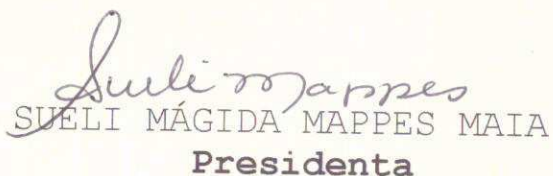 Sueli Mappes
SUELI MÁGIDA MAPPES MAIA
Presidenta